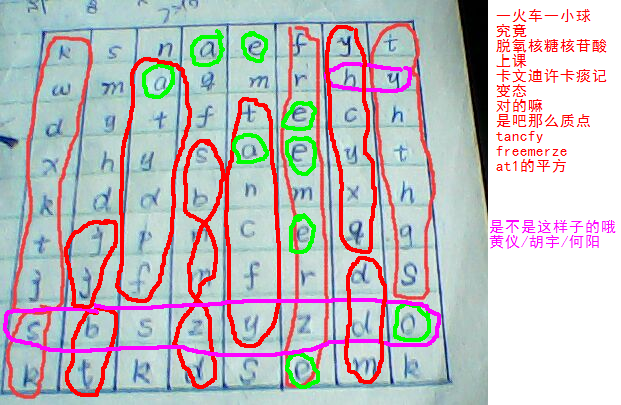 k s n a e f y t
w m a q m r h y
d y t f t e c h
x h y s a e y t
k d d b n m x h
t j p n c e q g
j j f n f r d s
s b s z y z d o
k t k d s e m k
一火车一小球
究竟
脱氧核糖核苷酸
上课
卡文迪许卡痰记
变态
对的嘛
是吧那么质点
tancfy
freemerze
at1的平方
是不是这样子的哦
黄仪/胡宇/何阳